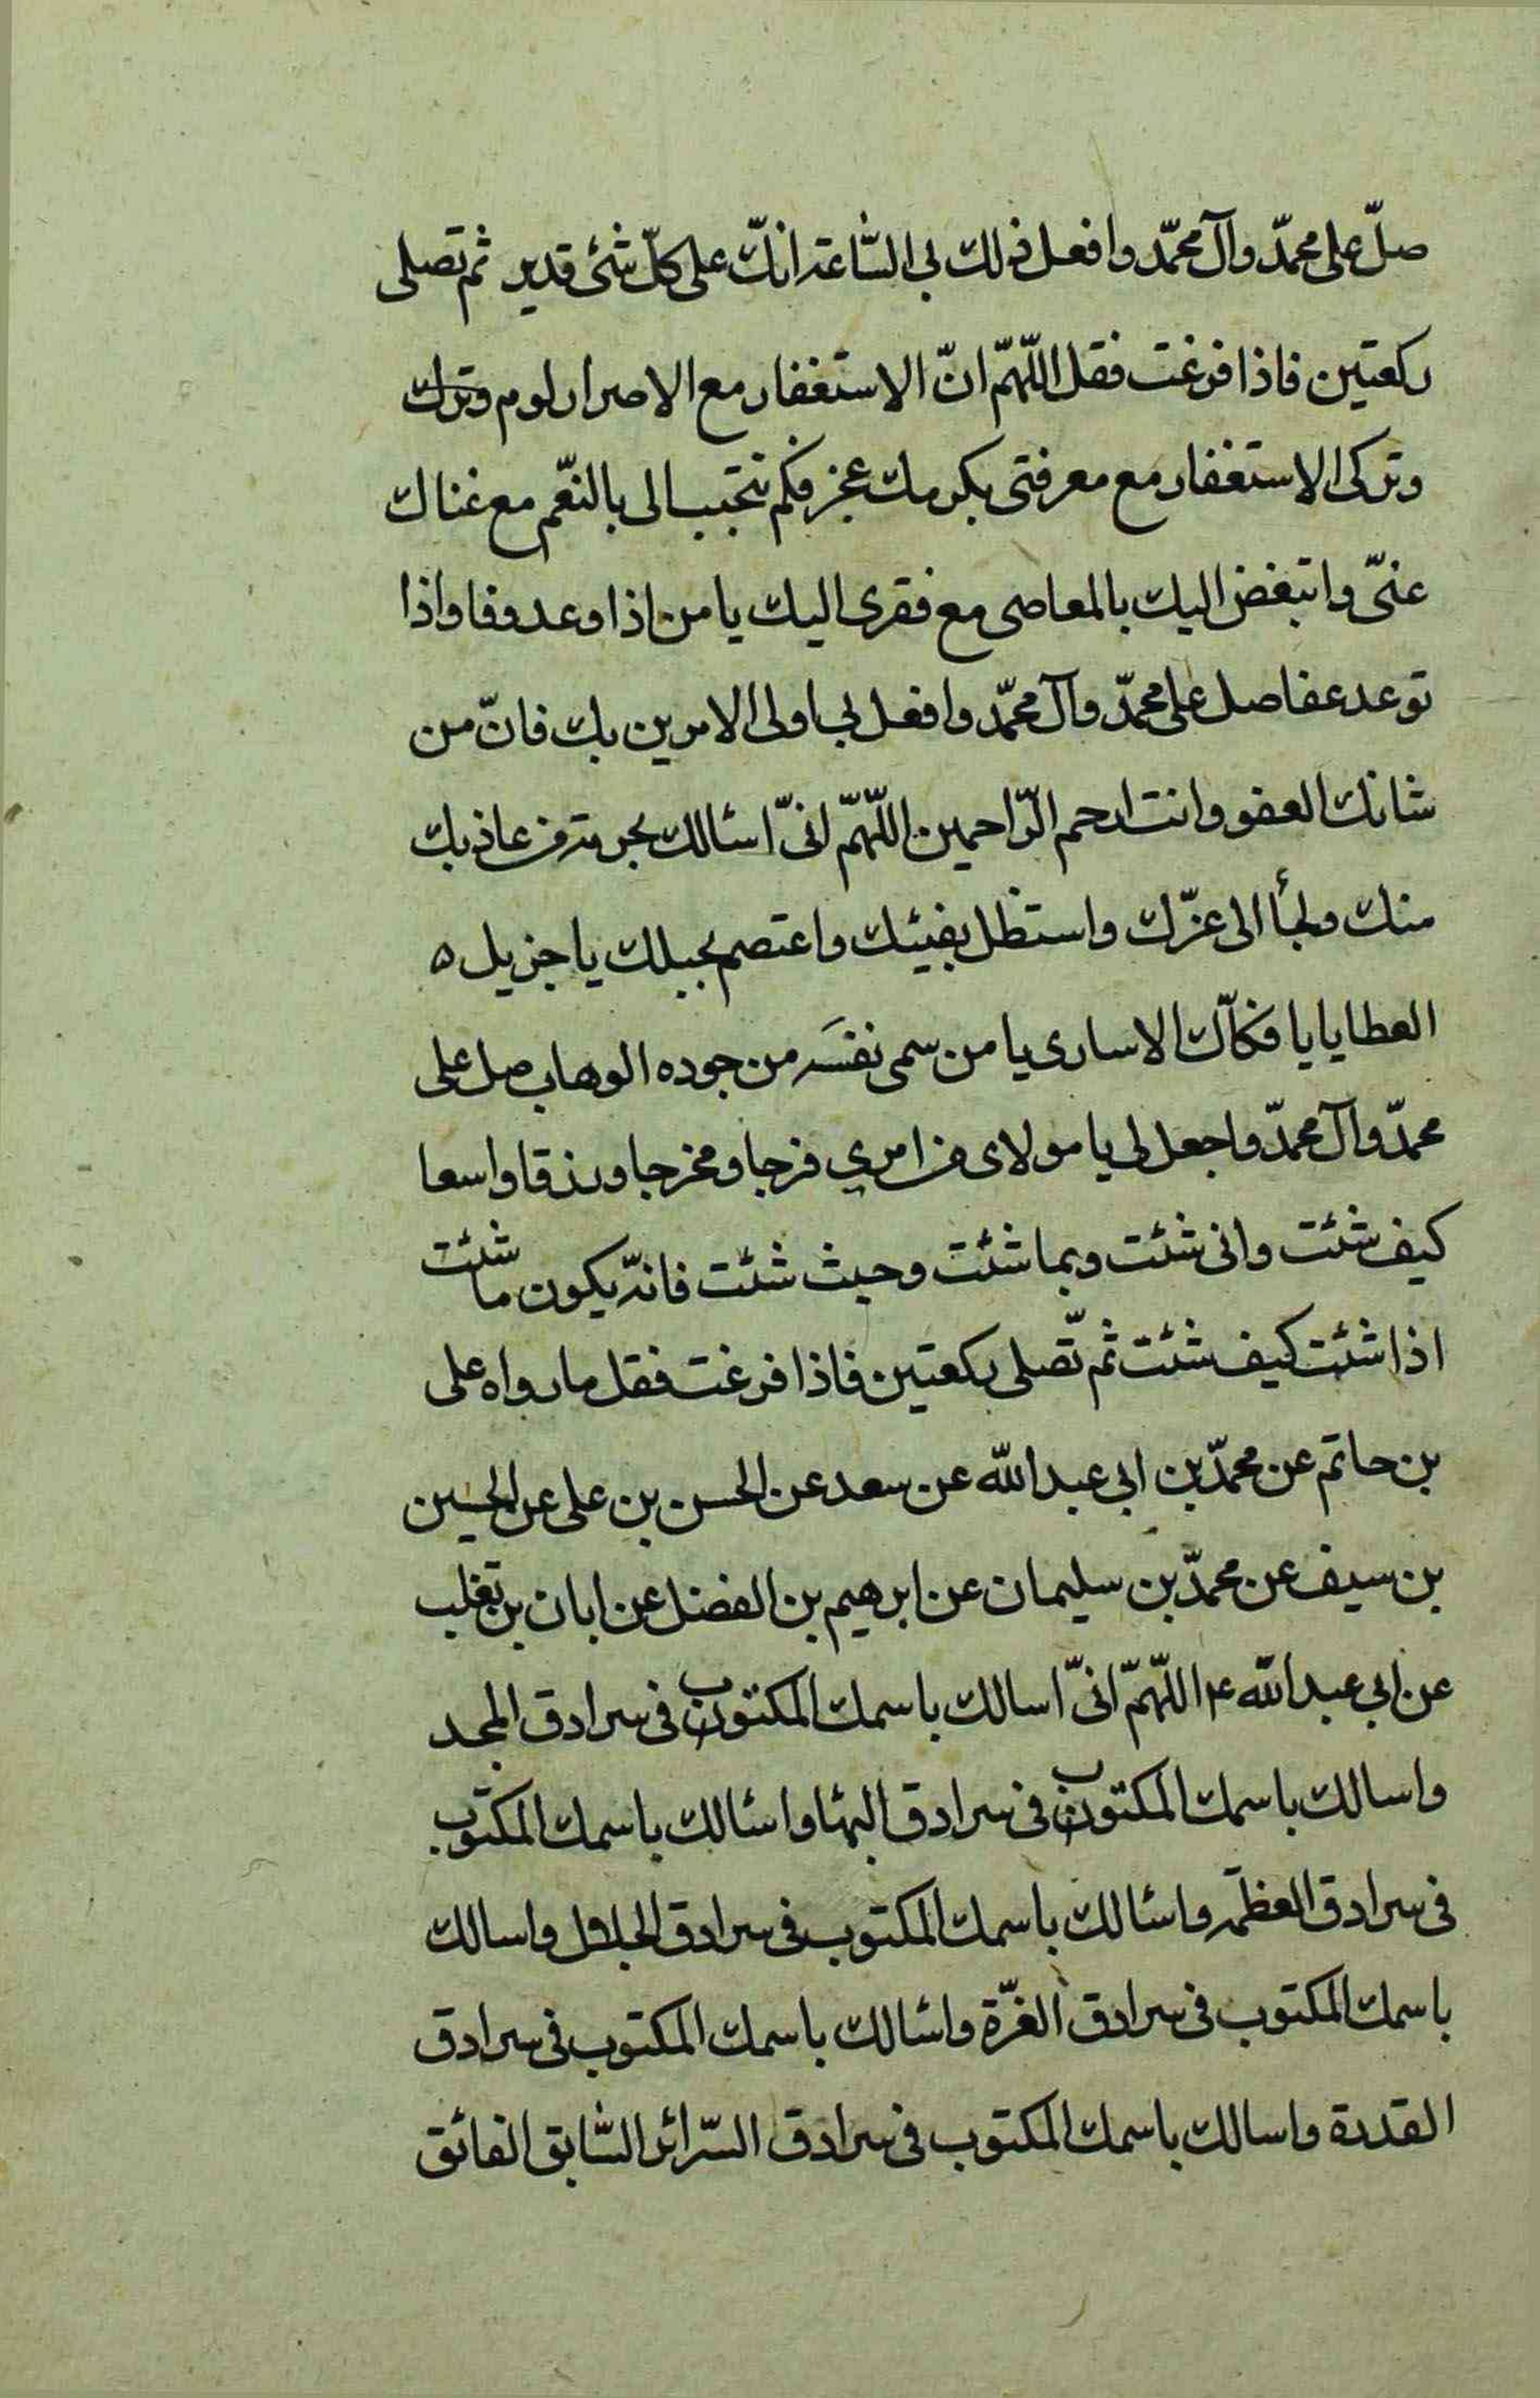 صلّ علی محمّد وآل محمّد وافعل ذلك بی السّاعة انكّ علی كلّ شئ قدير ثم تصلی
ركعتين فاذا فرغت فقل اللّهمّ انّ الاستغفار مع الاصرار لوم وترك
وتركی الاستغفار مع معرفتی بكرمك عجز فكم تتحبب الی بالنعّم مع غناك
عنیّ واتبغض اليك بالمعاصی مع فقری اليك يا من اذا وعد وفا واذا
توعد عفا صل علی محمّد وآل محمّد وافعل بی اولی الامرين بك فانّ من
شانك العفو وانت ارحم الرّاحمين اللّهمّ انیّ اسئالك بحرمة من عاذ بك
منك ولجأ الی عزّك واستظل بفيئك واعتصم بحبلك يا جزيل ه
العطايا يا فكاّك الاساری يا من سمی نفسَه من جوده الوهاب صل علی
محمدّ وآل محمدّ واجعل لی يا مولای من امری فرجا ومخرجا ورزقا واسعا
كيف شئت وانی شئت وبما شئت وحيث شئت فانهّ يكون ما شئت
اذا شئت كيف شئت ثم تّصلی ركعتين فاذا فرغت فقل ما رواه علی
بن حاتم عن محمدّ بن ابی عبد اللّه عن سعد عن الحسن بن علی عن الحسين
بن سيف عن محمدّ بن سليمان عن ابرهيم بن الفضل عن ابان بن تغلب
عن ابی عبد اللّه ع اللّهمّ انیّ اسالك باسمك المكتوب فی سرادق المجد
واسالك باسمك المكتوب فی سرادق البهاء واسئالك باسمك المكتوب
فی سرادق العظمة واسئالك باسمك المكتوب فی سرادق الجلال واسالك
باسمك المكتوب فی سرادق الغرّة واسئالك باسمك المكتوب فی سرادق
القدرة واسالك باسمك المكتوب فی سرادق السّرائر السّابق الفائق